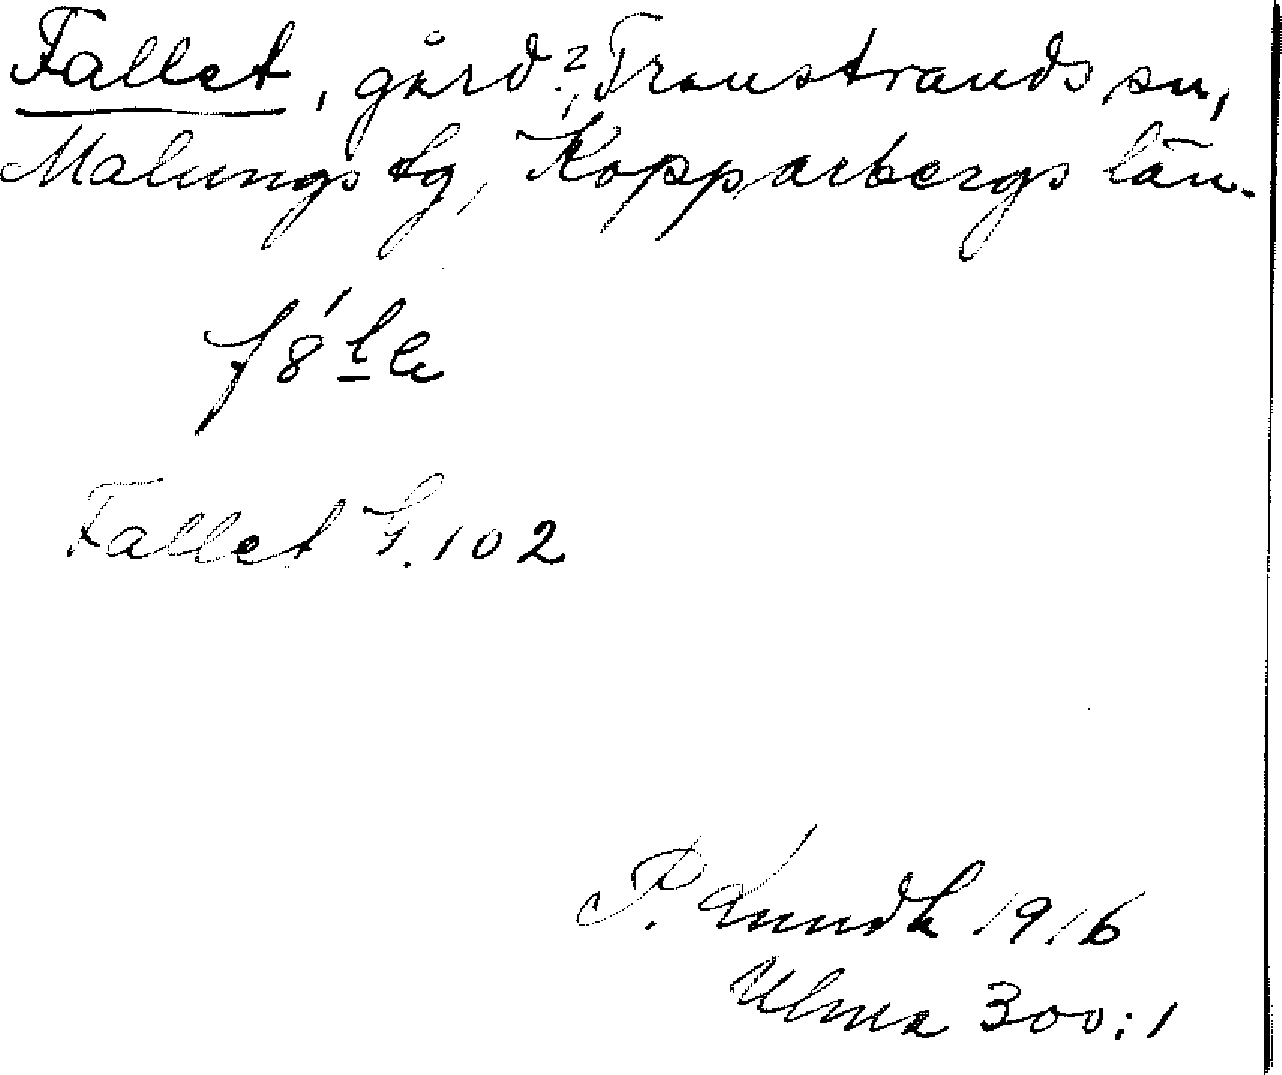 Fallet, gård?, Transtrands sn,
Malungs tg, Kopparbergs län.
Fallet S. 102
P. Lundk 1916
Ulma 300:1